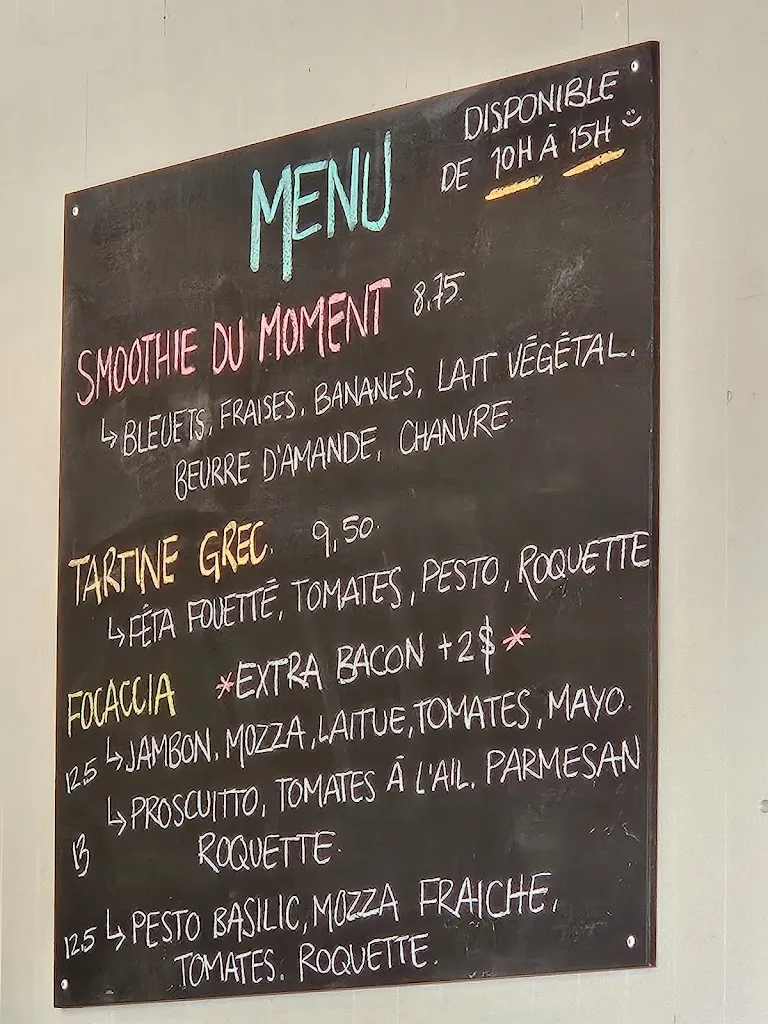 MENU
DISPONIBLE
DE 10H À 15H
SMOOTHIE DU MOMENT 8,75
↳ BLEUETS, FRAISES, BANANES, LAIT VÉGÉTAL.
BEURRE D'AMANDE, CHANVRE.
TARTINE GREC. 9,50.
↳ FÉTA FOUETTÉ, TOMATES, PESTO, ROQUETTE
FOCACCIA *EXTRA BACON +2$*
12.5 ↳ JAMBON, MOZZA, LAITUE, TOMATES, MAYO.
↳ PROSCUITTO, TOMATES À L'AIL. PARMESAN
13 ROQUETTE.
12.5 ↳ PESTO BASILIC, MOZZA FRAICHE,
TOMATES. ROQUETTE.